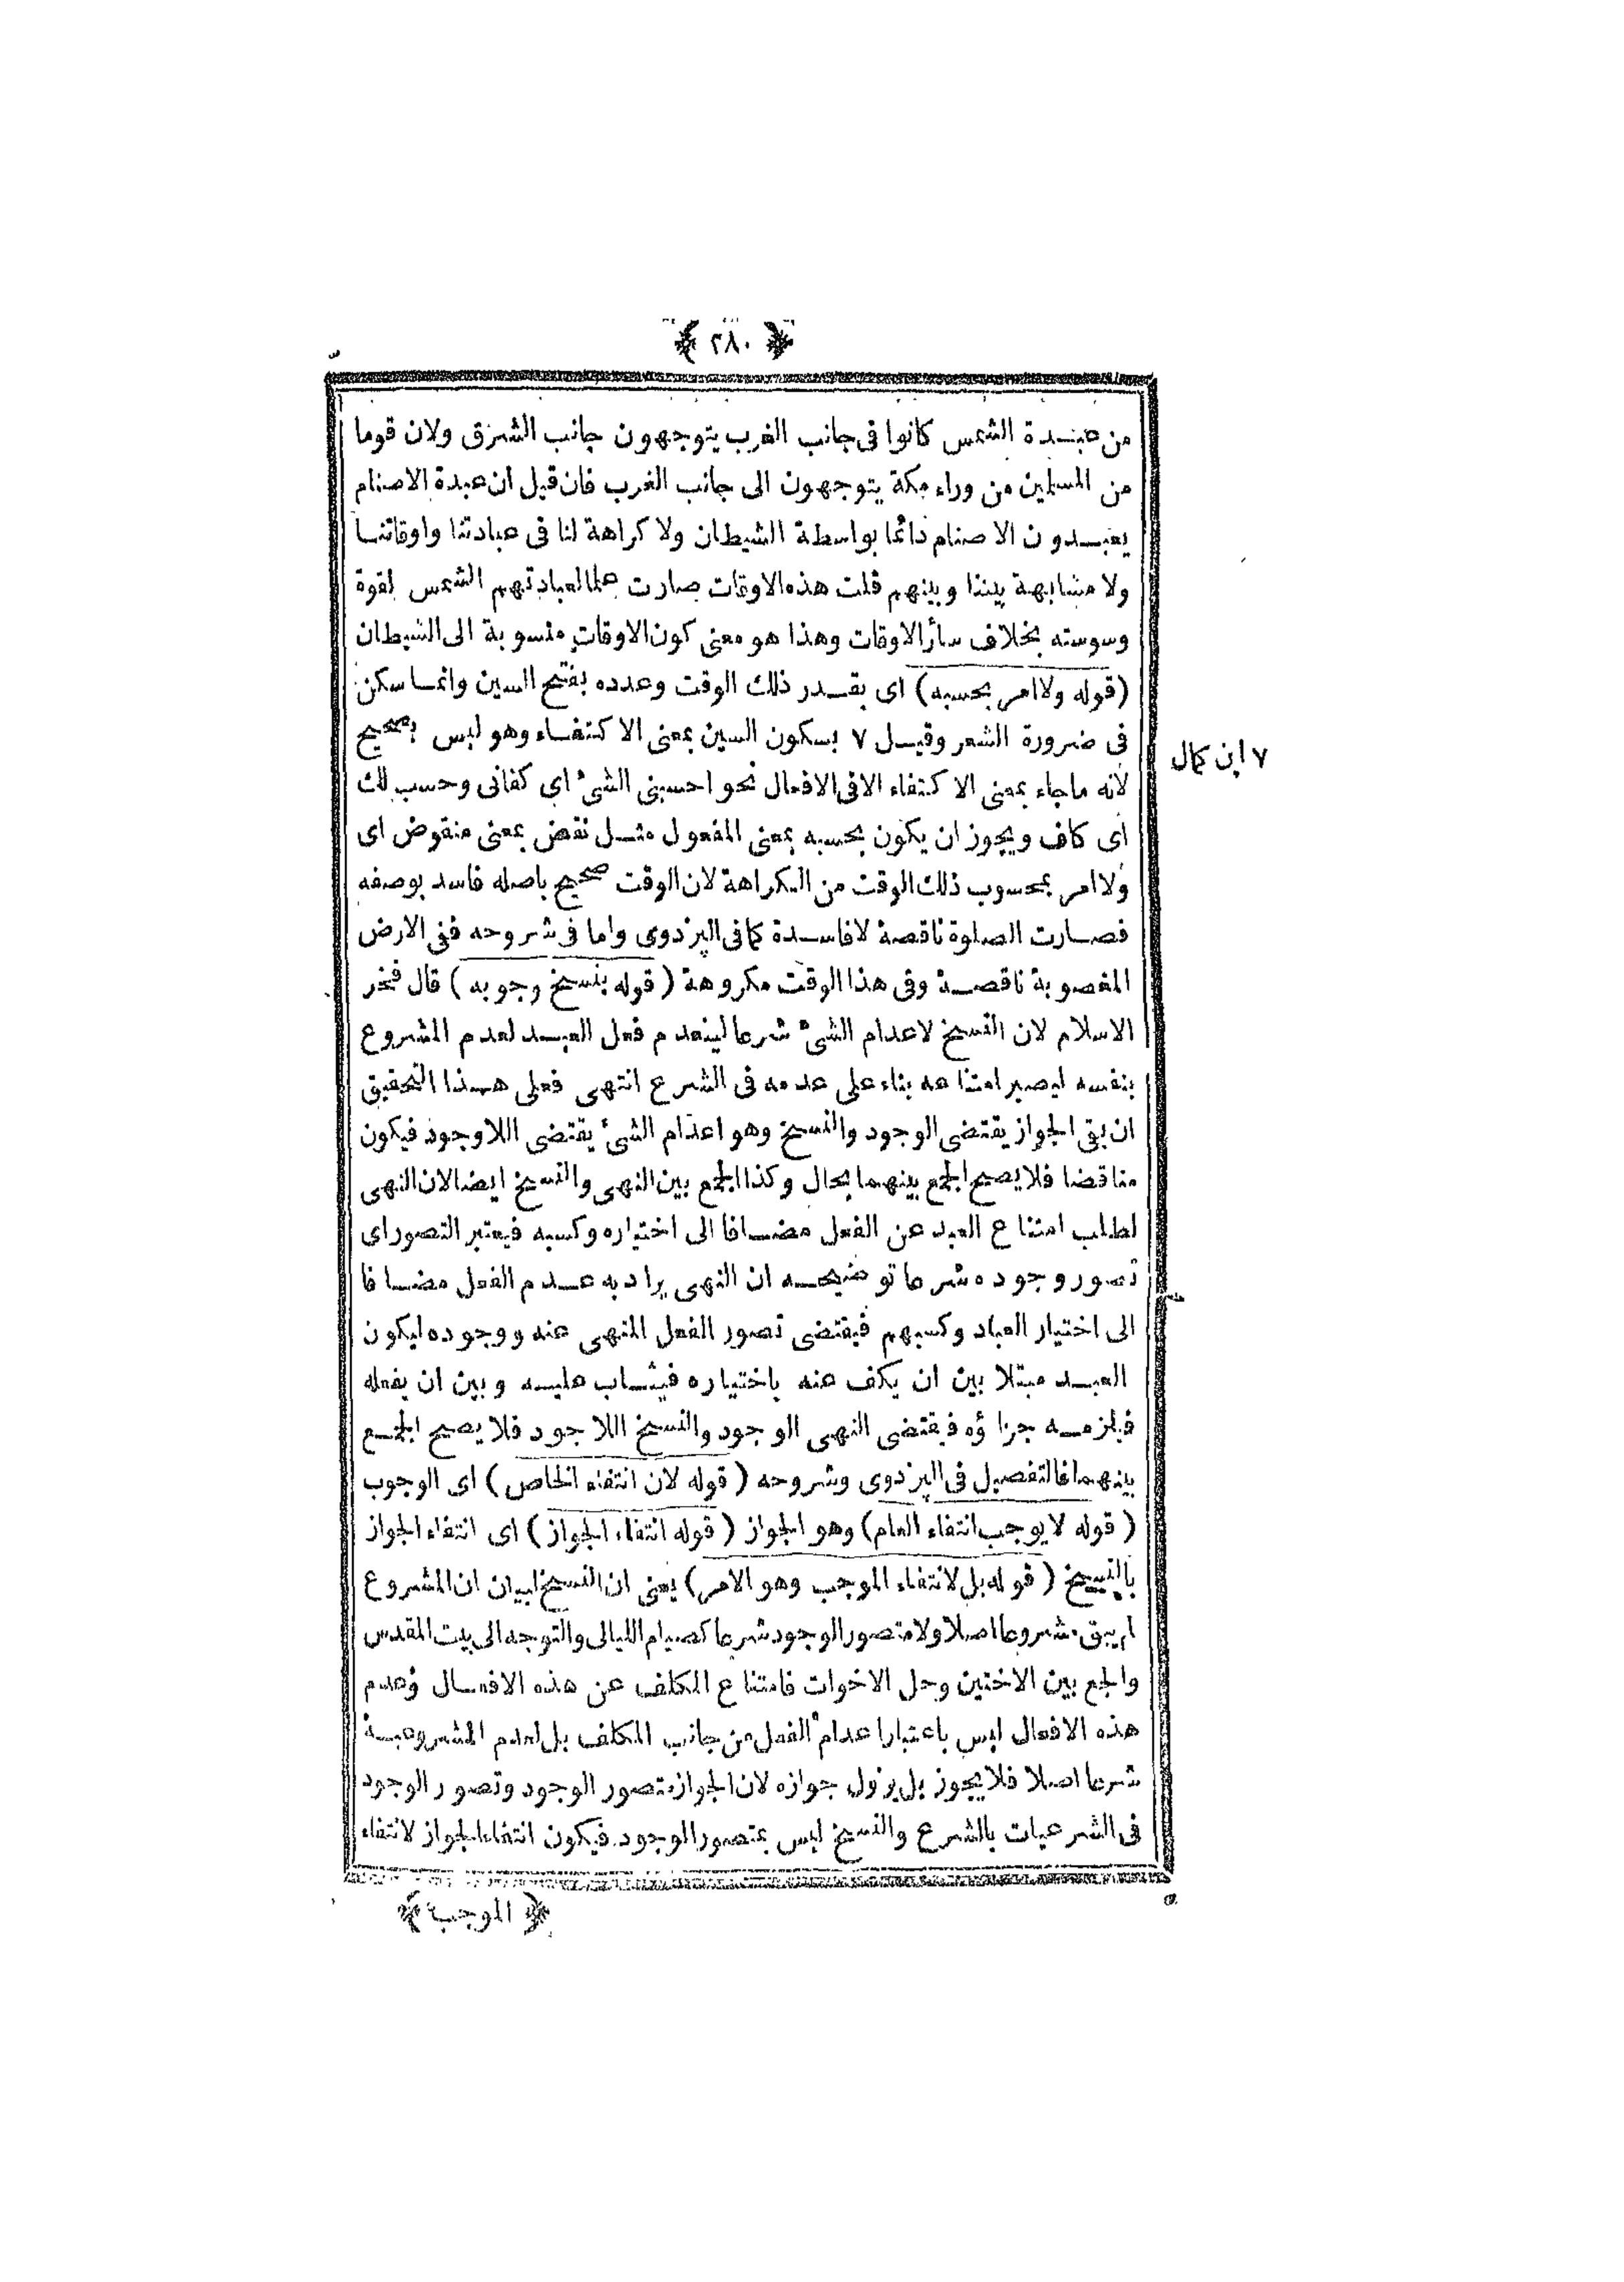 ﴿ ٢٨٠ ﴾
من عبدة الشمس كانوا فى جانب الغرب يتوجهون جانب الشرق ولان قوما
من المسلمين من وراء مكة يتوجهون الى جانب الغرب فان قيل ان عبدة الاصنام
يعبدون الاصنام دائما بواسطة الشيطان ولا كراهة لنا فى عبادتنا واوقاتنا
ولا مشابهة بيننا وبينهم قلت هذه الاوقات صارت علما لعبادتهم الشمس لقوة
وسوسته بخلاف سائر الاوقات وهذا هو معنى كون الاوقات منسوبة الى الشيطان
(قوله ولا امر بحسبه) اى بقدر ذلك الوقت وعدده بفتح السين وانما سكن
فى ضرورة الشعر وقيل ٧ بسكون السين بمعنى الاكتفاء وهو ليس بصحيح
٧ ابن كمال
لانه ماجاء بمعنى الاكتفاء الا فى الافعال نحو احسبنى الشئ اى كفانى وحسب لك
اى كاف ويجوز ان يكون بحسبه بمعنى المفعول مثل نقض بمعنى منقوض اى
ولا امر بمحسوب ذلك الوقت من الكراهة لان الوقت صحيح باصله فاسد بوصفه
فصارت الصلوة ناقصة لا فاسدة كما فى البزدوى واما فى شروحه ففى الارض
المغصوبة ناقصة وفى هذا الوقت مكروهة (قوله بنسخ وجوبه) قال فخر
الاسلام لان النسخ لاعدام الشئ شرعا لينعدم فعل العبد لعدم المشروع
بنفسه ليصير امتناعه بناء على عدمه فى الشرع انتهى فعلى هذا التحقيق
ان بقى الجواز يقتضى الوجود والنسخ وهو اعدام الشئ يقتضى اللاوجود فيكون
مناقضا فلا يصح الجمع بينهما بحال وكذا الجمع بين النهى والنسخ ايضا لان النهى
لطلب امتناع العبد عن الفعل مضافا الى اختياره وكسبه فيعتبر التصور اى
تصور وجوده شرعا توضيحه ان النهى يراد به عدم الفعل مضافا
الى اختيار العباد وكسبهم فيقتضى تصور الفعل المنهى عنه ووجوده ليكون
العبد مبتلا بين ان يكف عنه باختياره فيثاب عليه وبين ان يفعله
فيلزمه جزاؤه فيقتضى النهى الوجود والنسخ اللاجود فلا يصح الجمع
بينهما فالتفصيل فى البزدوى وشروحه (قوله لان انتفاء الخاص) اى الوجوب
(قوله لا يوجب انتفاء العام) وهو الجواز (قوله انتفاء الجواز) اى انتفاء الجواز
بالنسخ (قوله بل لانتفاء الموجب وهو الامر) يعنى ان النسخ لبيان ان المشروع
لم يبق مشروعا اصلا ولا متصور الوجود شرعا كصيام الليالى والتوجه الى بيت المقدس
والجمع بين الاختين وحل الاخوات فامتناع المكلف عن هذه الافعال وعدم
هذه الافعال ليس باعتبار اعدام الفعل من جانب المكلف بل لعدم المشروعية
شرعا اصلا فلا يجوز بل يزول جوازه لان الجواز متصور الوجود وتصور الوجود
فى الشرعيات بالشرع والنسخ ليس بمتصور الوجود فيكون انتفاء الجواز لانتفاء
﴿ الموجب ﴾